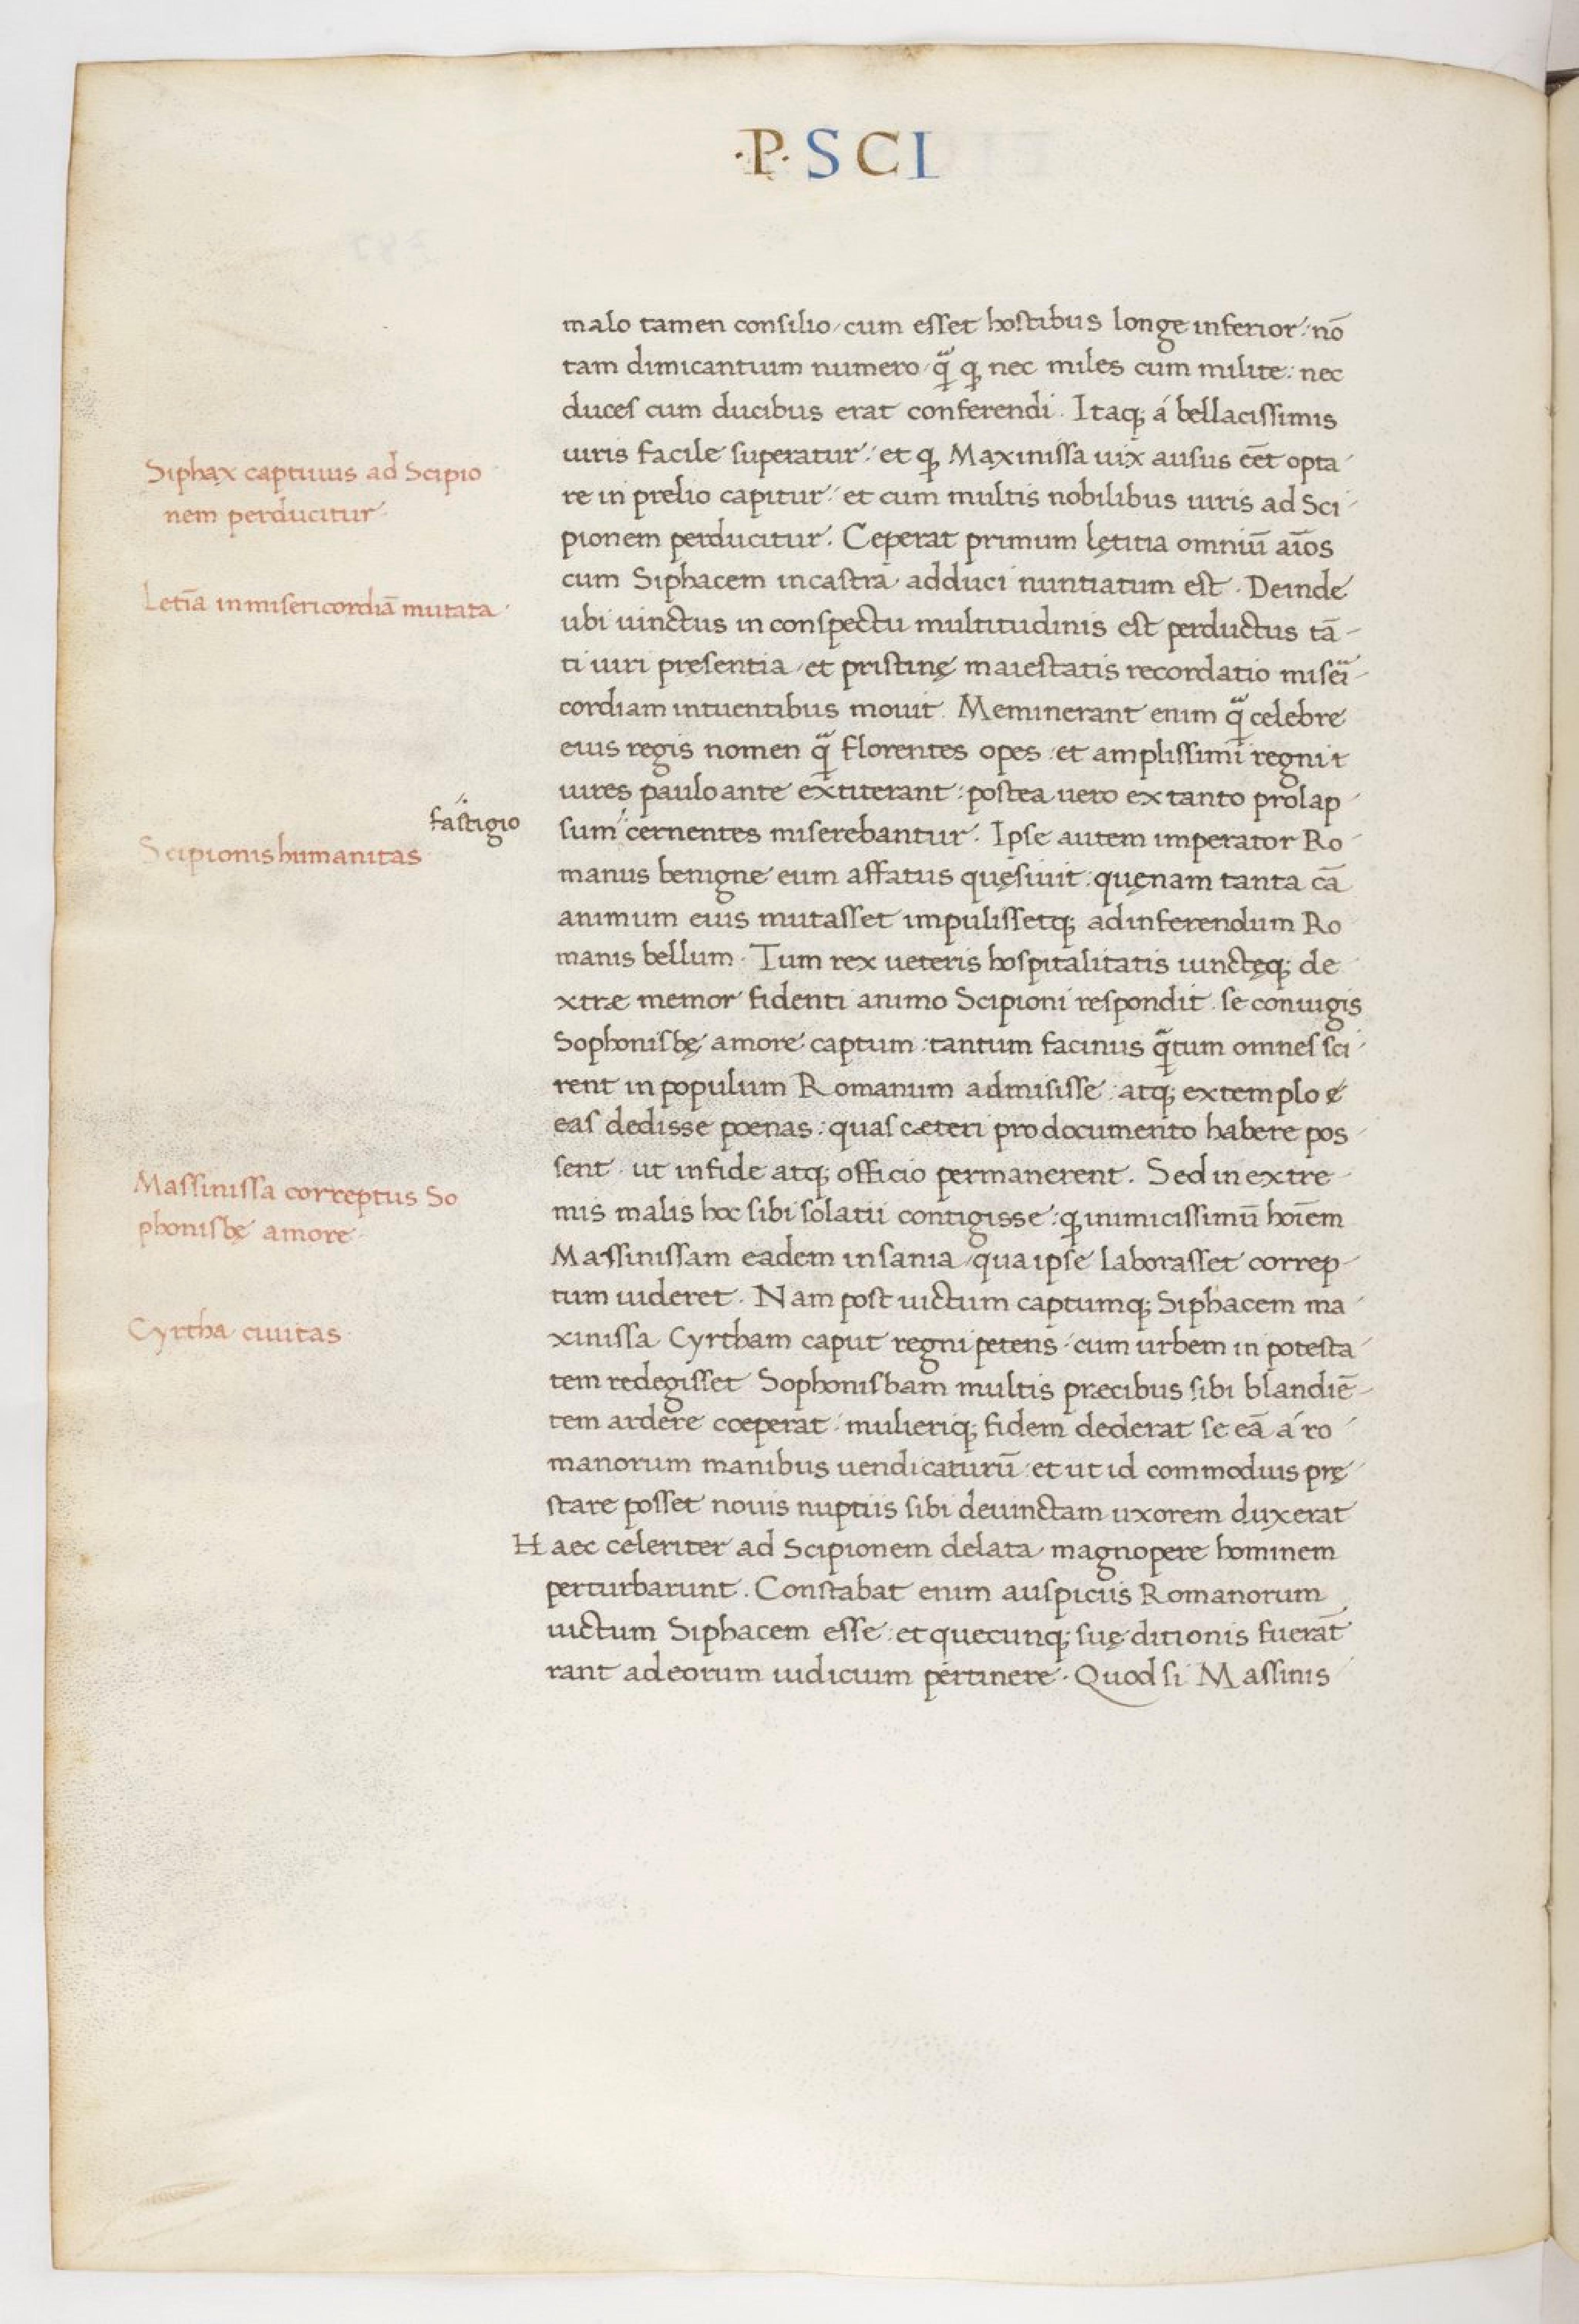 ·P· S C I
malo tamen consilio, cum esset hostibus longe inferior: nō
tam dimicantium numero, q̃ ꝙ nec miles cum milite: nec
duces cum ducibus erat conferendi. Itaq; á bellacissimis
uiris facile superatur: et ꝙ Maxinissa uix ausus eēt opta
Siphax captiuus ad Scipio
nem perducitur
re in prelio capitur: et cum multis nobilibus uiris ad Sci
pionem perducitur. Ceperat primum lętitia omniū aīos
cum Siphacem in castra adduci nuntiatum est. Deinde
Letīa in misericordiā mutata
ubi uinctus in conspectu multitudinis est perductus tā
ti uiri pręsentia, et pristinę maiestatis recordatio miseri
cordiam intuentibus mouit. Meminerant enim q̃ celebre
eius regis nomen q̃ florentes opes: et amplissimi regni t
uires paulo ante extiterant: postea uero ex tanto prolap
fastigio
sum cernentes miserebantur. Ipse autem imperator Ro
Scipionis humanitas
manus benigne eum affatus quęsiuit: quęnam tanta cā
animum eius mutasset impulissetq; ad inferendum Ro
manis bellum. Tum rex ueteris hospitalitatis iunctęq; de
xtræ memor fidenti animo Scipioni respondit. se coniugis
Sophonisbę amore captum: tantum facinus q̃tum omnes sci
rent in populum Romanum admisisse: atq; extemplo ę
eas dedisse poenas: quas cæteri pro documento habere pos
sent. ut in fide atq; officio permanerent. Sed in extre
Massinissa correptus So
phonisbę amore
mis malis hoc sibi solatii contigisse: ꝙ inimicissimū hoīem
Massinissam eadem insania, qua ipse laborasset correp
tum uideret. Nam post uictum captumq; Siphacem ma
Cyrtha ciuitas
xinissa Cyrtham caput regni petens: cum urbem in potesta
tem redegisset Sophonisbam multis præcibus sibi blandiē
tem ardere coeperat: mulieriq; fidem dederat se eā á ro
manorum manibus uendicaturū: et ut id commodius prę
stare posset nouis nuptiis sibi deuinctam uxorem duxerat
Haec celeriter ad Scipionem delata magnopere hominem
perturbarunt. Constabat enim auspiciis Romanorum
uictum Siphacem esse: et quecunq; suę ditionis fuerāt
rant ad eorum iudicium pertinere. Quod si Massinis